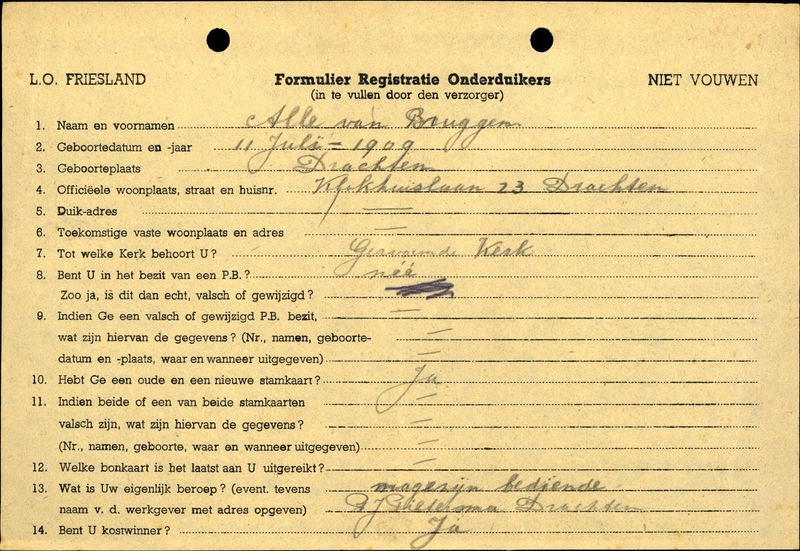 L.O. FRIESLAND Formulier Registratie Onderduikers NIET VOUWEN
(in te vullen door den verzorger)
1. Naam en voornamen Alle van Bruggen
2. Geboortedatum en -jaar 11 Juli - 1909
3. Geboorteplaats Drachten
4. Officiëele woonplaats, straat en huisnr. Klokhuislaan 23 Drachten
5. Duik-adres —
6. Toekomstige vaste woonplaats en adres —
7. Tot welke Kerk behoort U? Gervormde Kerk
8. Bent U in het bezit van een P.B.? néé
Zoo ja, is dit dan echt, valsch of gewijzigd?
9. Indien Ge een valsch of gewijzigd P.B. bezit, —
wat zijn hiervan de gegevens? (Nr., namen, geboorte- —
datum en -plaats, waar en wanneer uitgegeven) —
10. Hebt Ge een oude en een nieuwe stamkaart? Ja
11. Indien beide of een van beide stamkaarten —
valsch zijn, wat zijn hiervan de gegevens? —
(Nr., namen, geboorte, waar en wanneer uitgegeven) —
12. Welke bonkaart is het laatst aan U uitgereikt? —
13. Wat is Uw eigenlijk beroep? (event. tevens magesijn bediende
naam v. d. werkgever met adres opgeven) Drachten
14. Bent U kostwinner? Ja